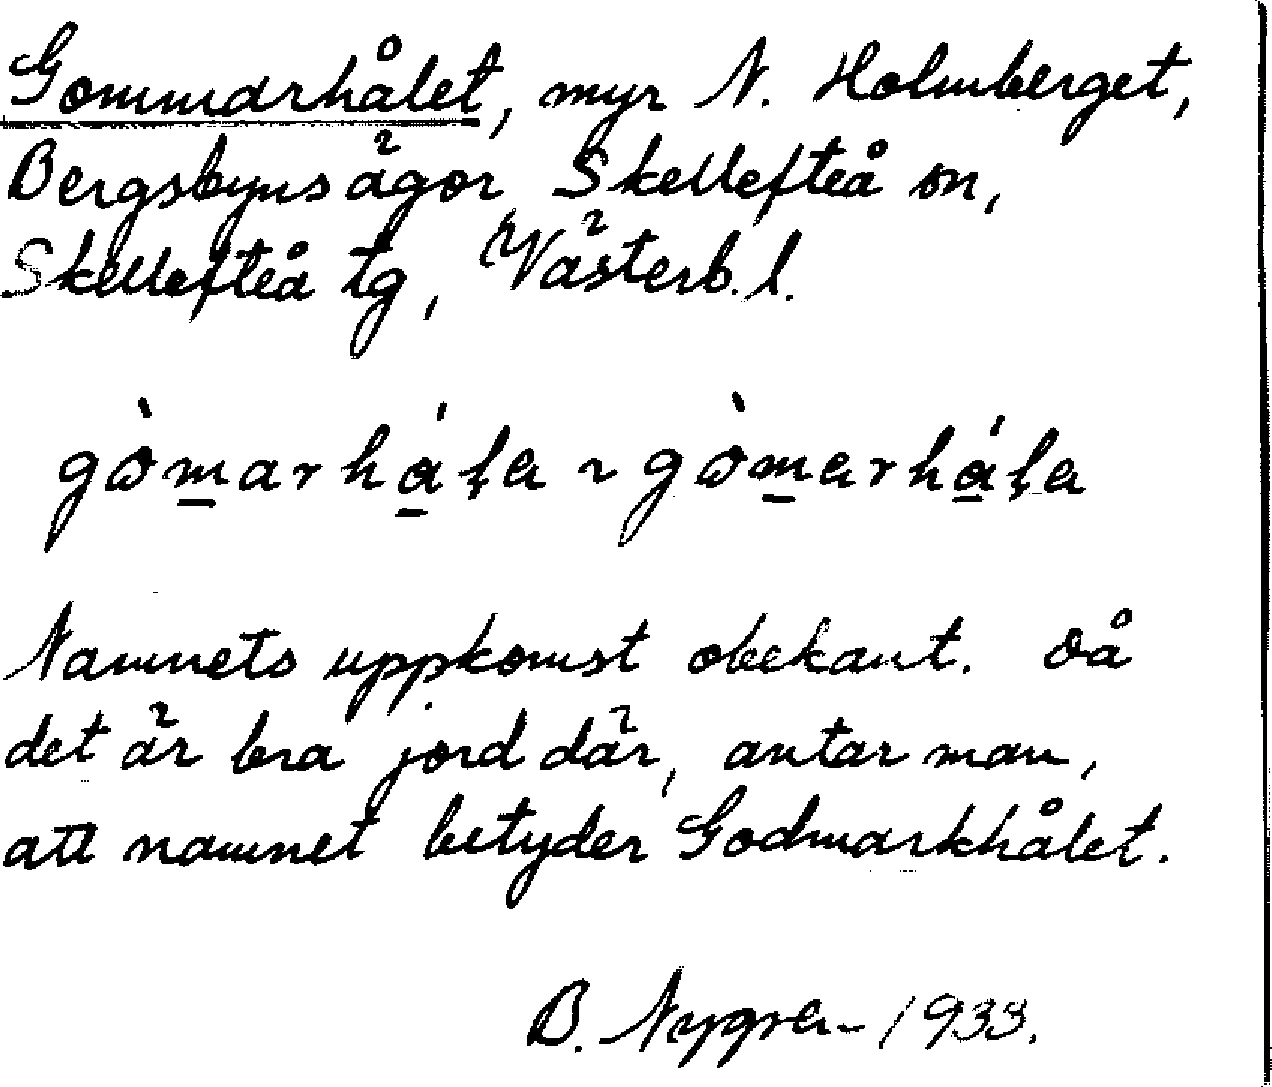 Gommarhålet, myr N. Holmberget,
Bergsbyns ägor, Skellefteå sn,
Skellefteå tg, Västerb. l.
gòmarhála ~ gòmarhála
Namnets uppkomst obekant. Då
det är bra jord där, antar man,
att namnet betyder Godmarkhålet.
B. Nygren 1933.